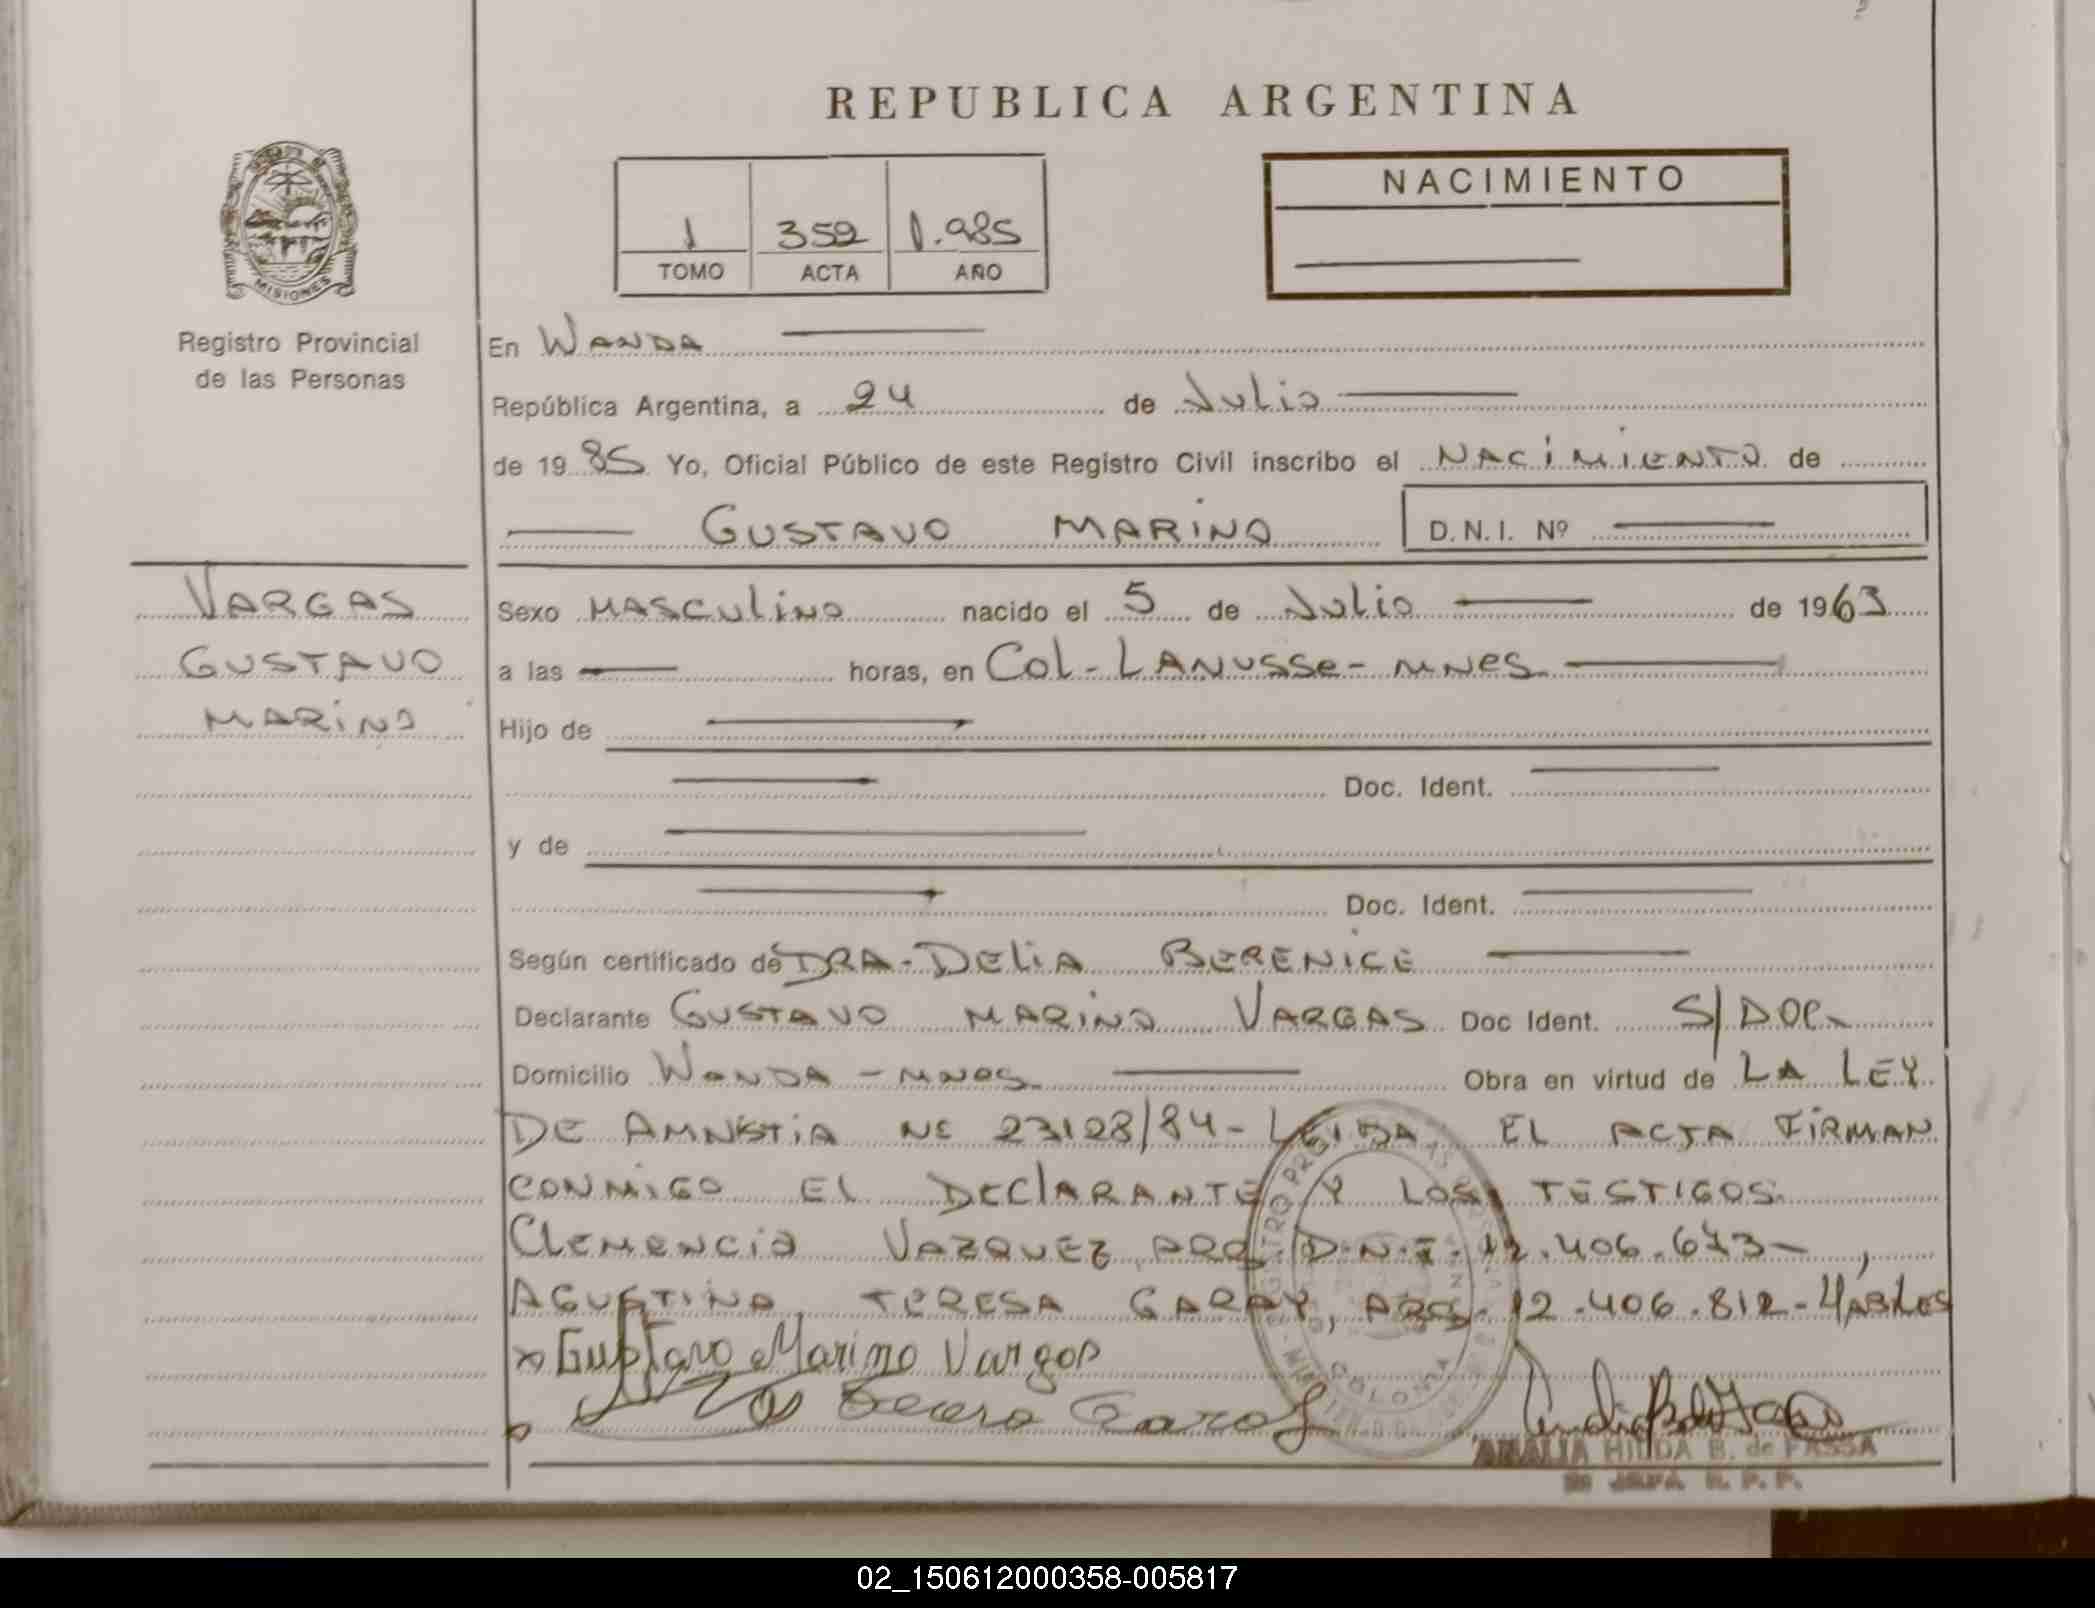 REPUBLICA ARGENTINA
NACIMIENTO
1 359 1.985
TOMO ACTA AÑO
MISIONES
Registro Provincial
de las Personas
En WANDA
República Argentina, a 24 de Julio
de 1985 Yo, Oficial Público de este Registro Civil inscribo el NACIMIENTO de
GUSTAVO MARINO D.N.I. Nº
VARGAS
GUSTAVO
MARINO
Sexo MASCULINO nacido el 5 de Julio de 1963
a las horas, en Col-LANUSSE-MNES
Hijo de
Doc. Ident.
y de
Doc. Ident.
Según certificado de DRA-DELIA BERENICE
Declarante GUSTAVO MARINO VARGAS Doc Ident. S/DOC
Domicilio WANDA-MNES Obra en virtud de LA LEY
DE AMNISTIA NE 23128/84-LEIDA EL ACTA FIRMAN
CONMIGO EL DECLARANTE Y LOS TESTIGOS
CLEMENCIA VAZQUEZ ARG. D.N.I. 12.406.673-,
AGUSTINA TERESA GARAY, ARG. 12.406.812-HABLES
x Gustavo Marino Vargas
AMALIA HILDA B. de FASSA
COLONIA
02_150612000358-005817